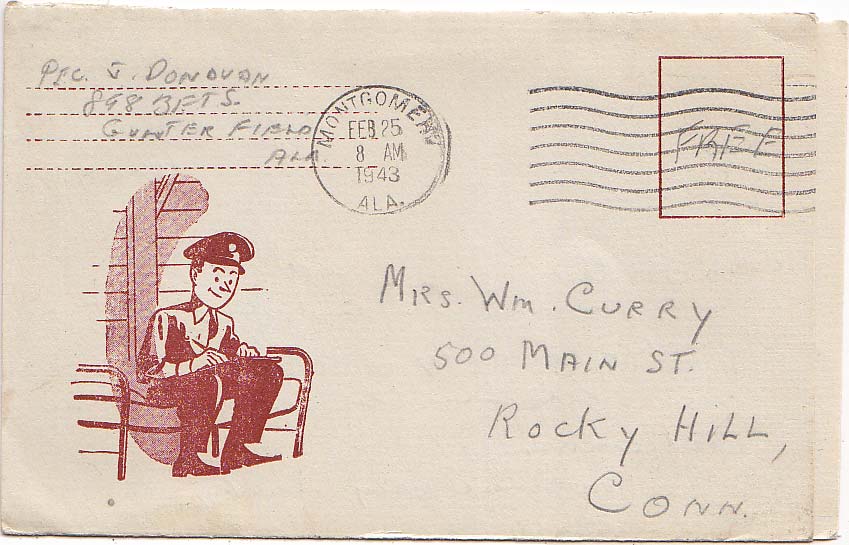 Pfc. J. Donovan
898 BFTS.
Gunter Field
Ala.
MONTGOMERY
FEB 25
8 AM
1943
ALA.
FREE
Mrs. Wm. Curry
500 Main St.
Rocky Hill,
Conn.